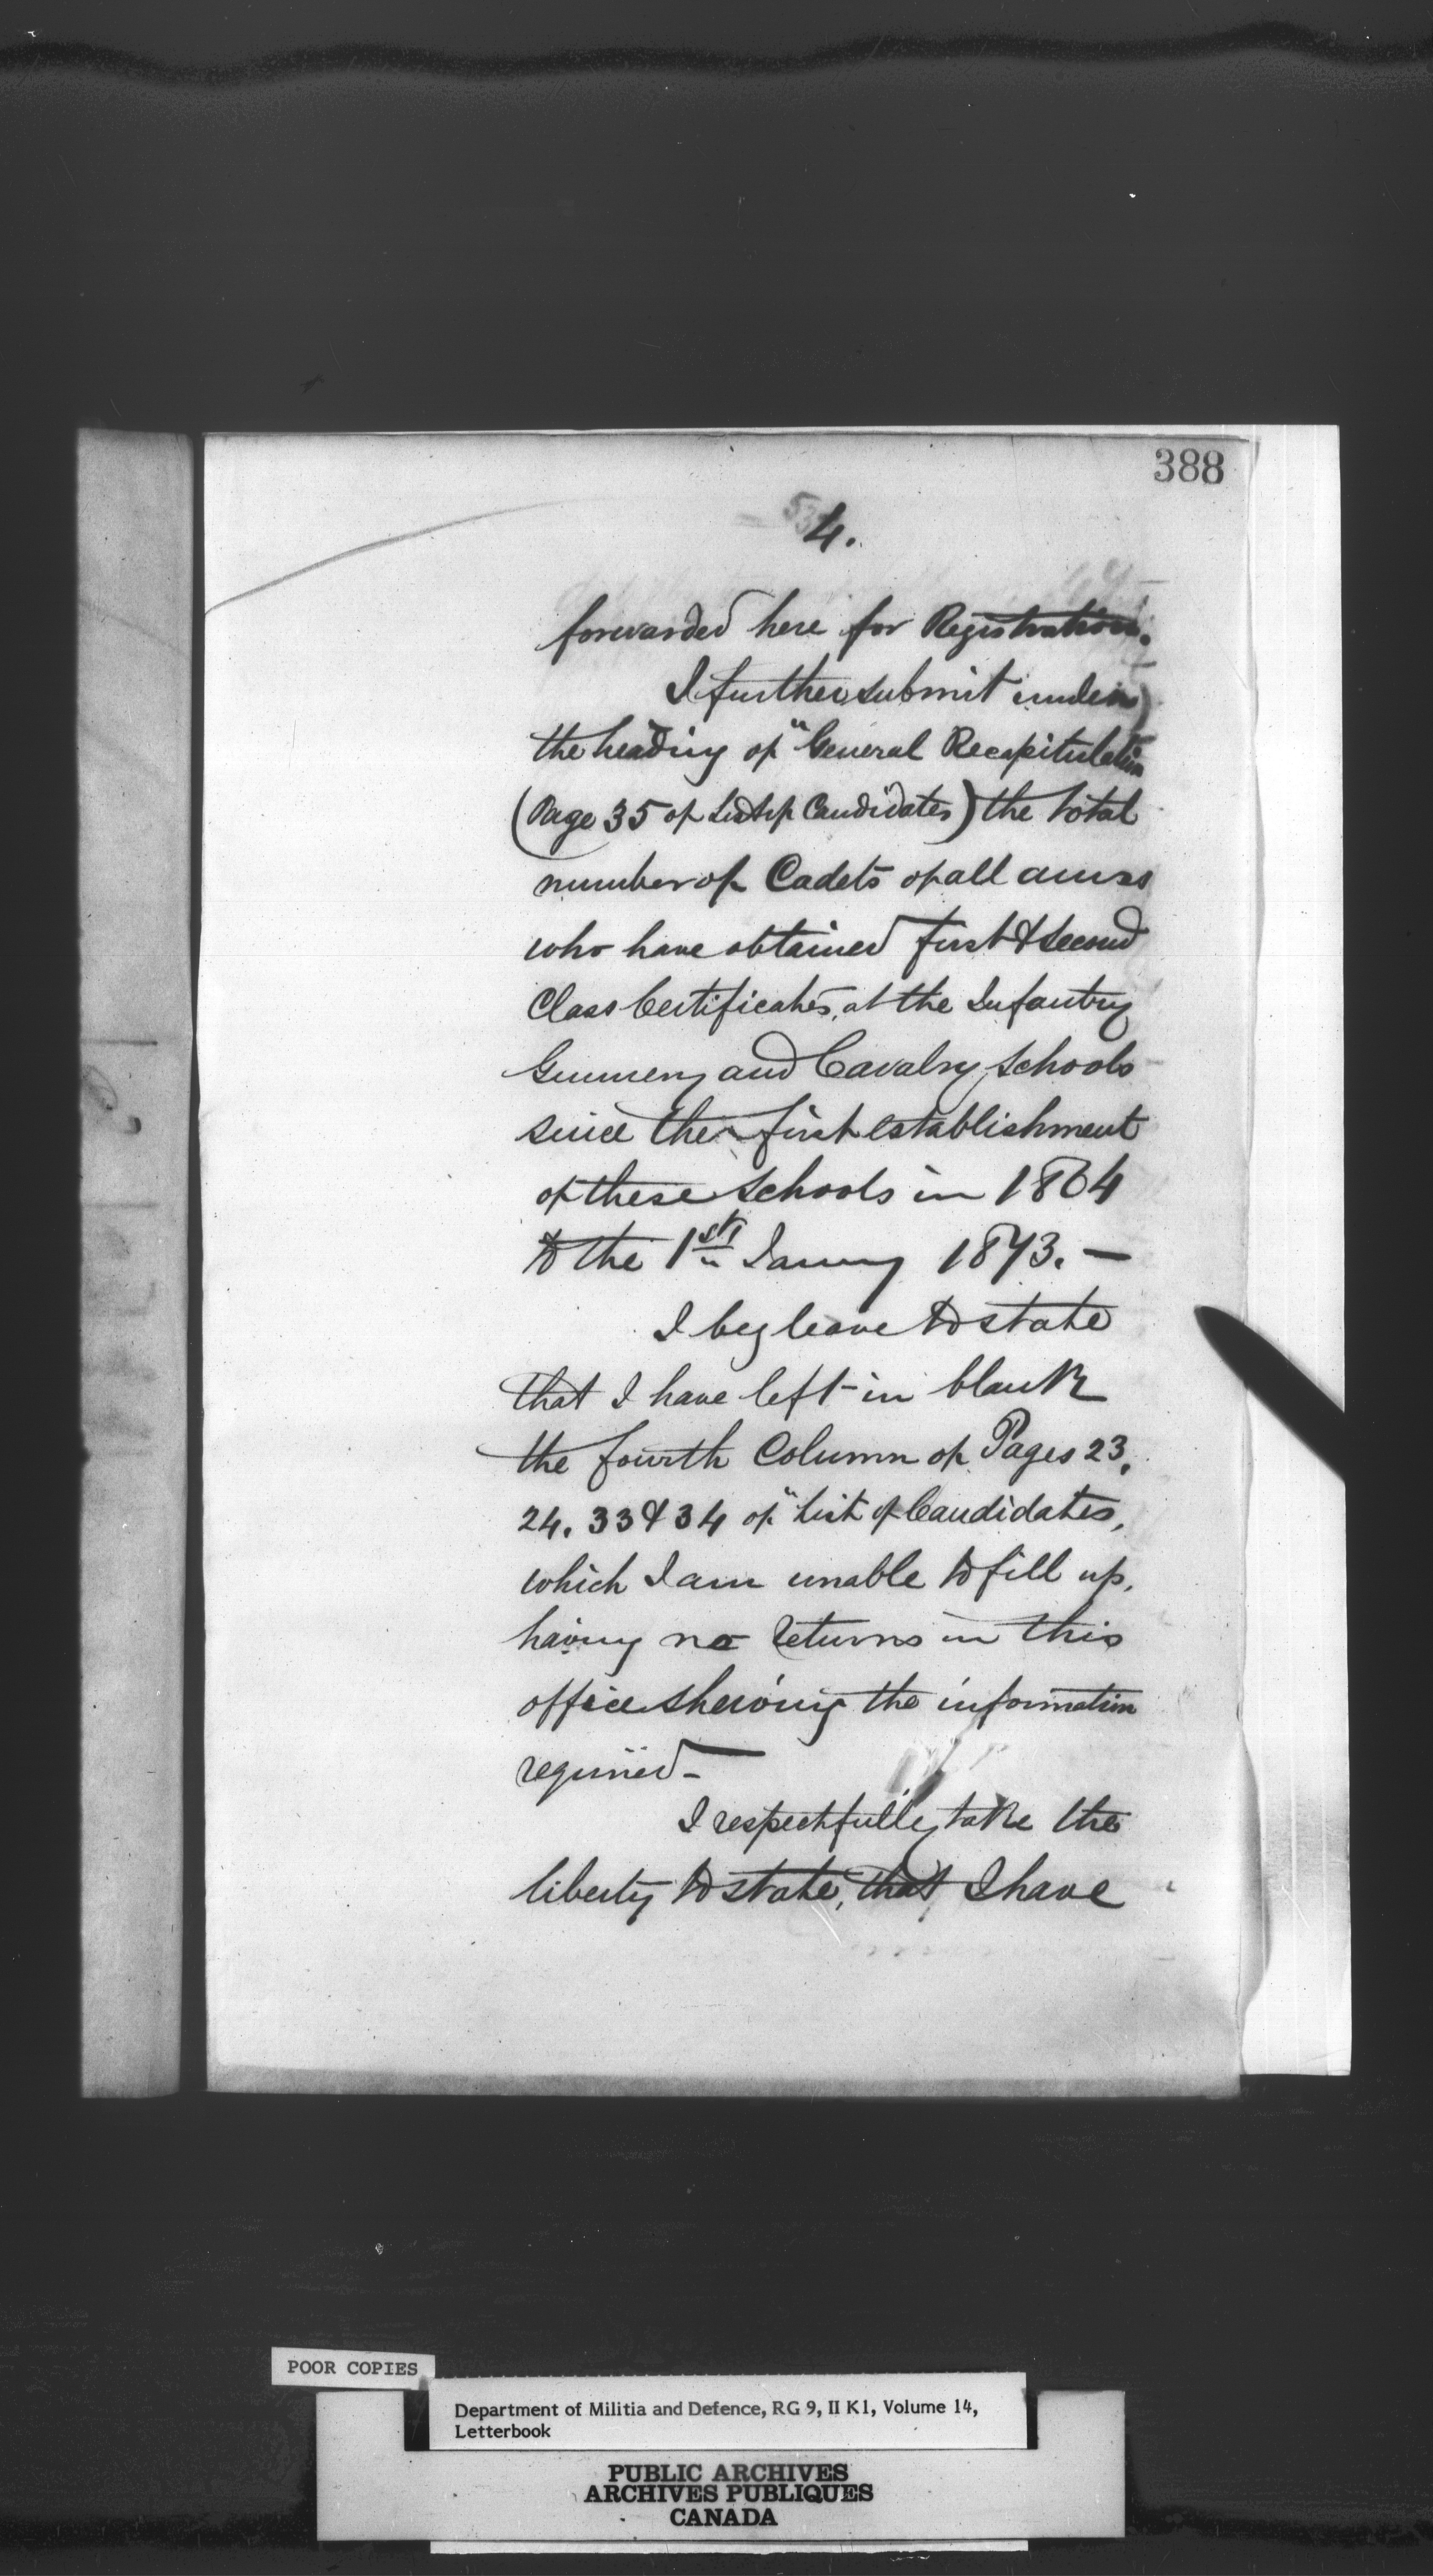 388
4.
forwarded here for Registration.
I further submit under
the heading of "General Recapitulation
(Page 35 of List of Candidates) the total
number of Cadets of all arms
who have obtained first & second
Class Certificates, at the Infantry
Gunnery and Cavalry Schools
since the first establishment
of these Schools in 1864
to the 1st January 1873. —
I beg leave to state
that I have left in blank
the fourth Column of Pages 23,
24. 33 & 34 of "List of Candidates,
which I am unable to fill up,
having no returns in this
office shewing the information
required —
I respectfully take the
liberty to state, that I have
POOR COPIES
Department of Militia and Defence, RG 9, II K1, Volume 14,
Letterbook
PUBLIC ARCHIVES
ARCHIVES PUBLIQUES
CANADA